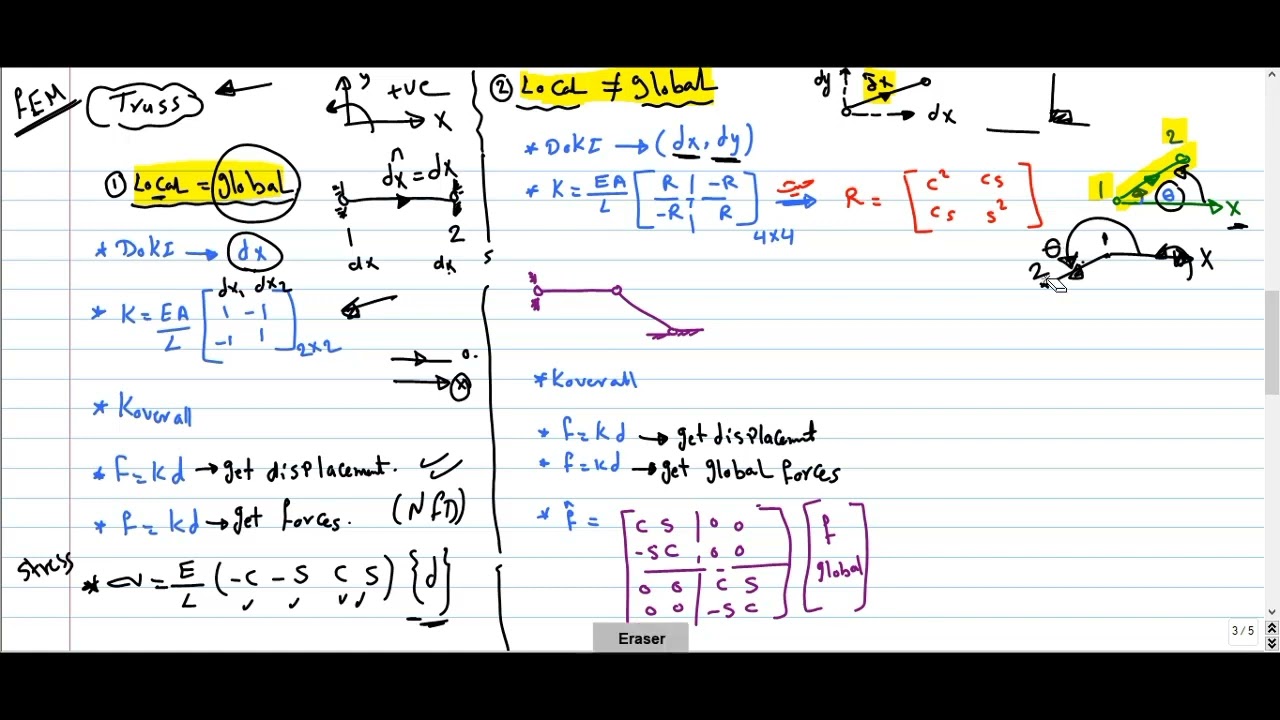 FEM
Truss
y
+ve
X
① Local = global
d̂x = dx
1 2
dx dx
* DoKI → dx
dx1 dx2
* K = EA/L [ 1 -1
-1 1 ] 2x2
0.
x
* Koverall
* F = kd → get displacement.
* f = kd → get forces. (NfD)
stress
* σ = E/L (-C -S C S) {d}
② Local ≠ global
dy
dx
* DoKI → (dx, dy)
* K = EA/L [ R | -R
-R | R ] 4x4
R = [ c² cs
cs s² ]
1
2
θ
X
θ
1
2
X
* Koverall
* f = kd → get displacement
* f = kd → get global forces
* f̂ = [ C S | 0 0
-S C | 0 0
0 0 | C S
0 0 | -S C ] [ f
global ]
Eraser
3 / 5